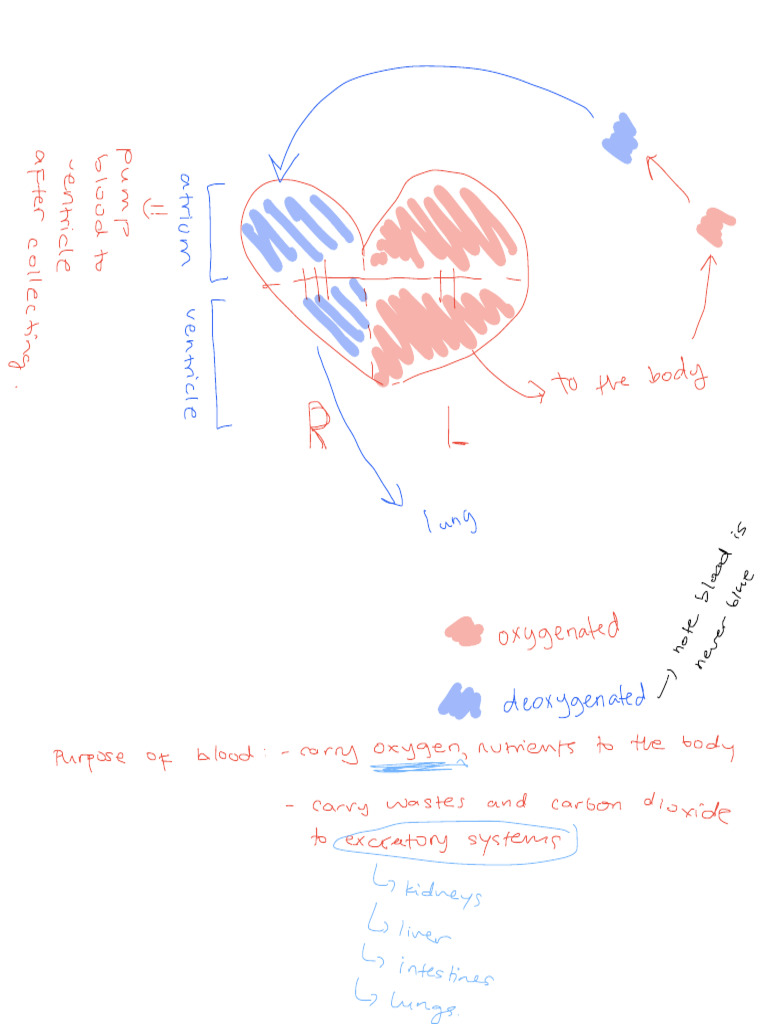 pump
blood to
ventricle
after collecting.
atrium
ventricle
R
L
to the body
lung
oxygenated
deoxygenated
note blood is
never blue
Purpose of blood: - carry oxygen, nutrients to the body
- carry wastes and carbon dioxide
to excratory systems
kidneys
liver
intestines
lungs.